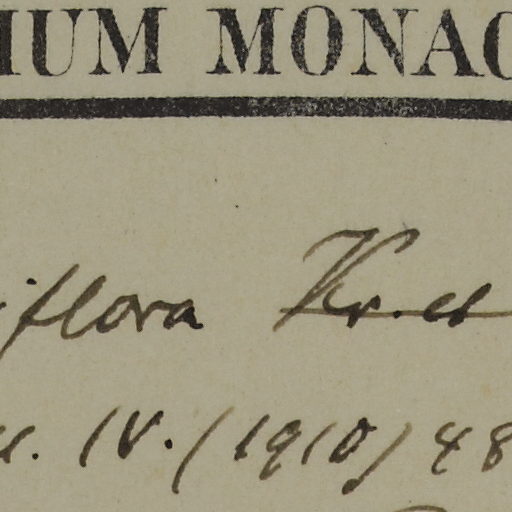 IUM MONAC
iflora Kr. et
. IV. (1910) 48